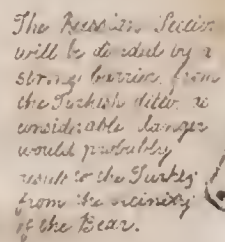 The Russian Section
will be divided by a
strong barrier from
the Turkish ditto. as
considerable danger
would probably
result to the Turkey
from the vicinity
of the Bear.